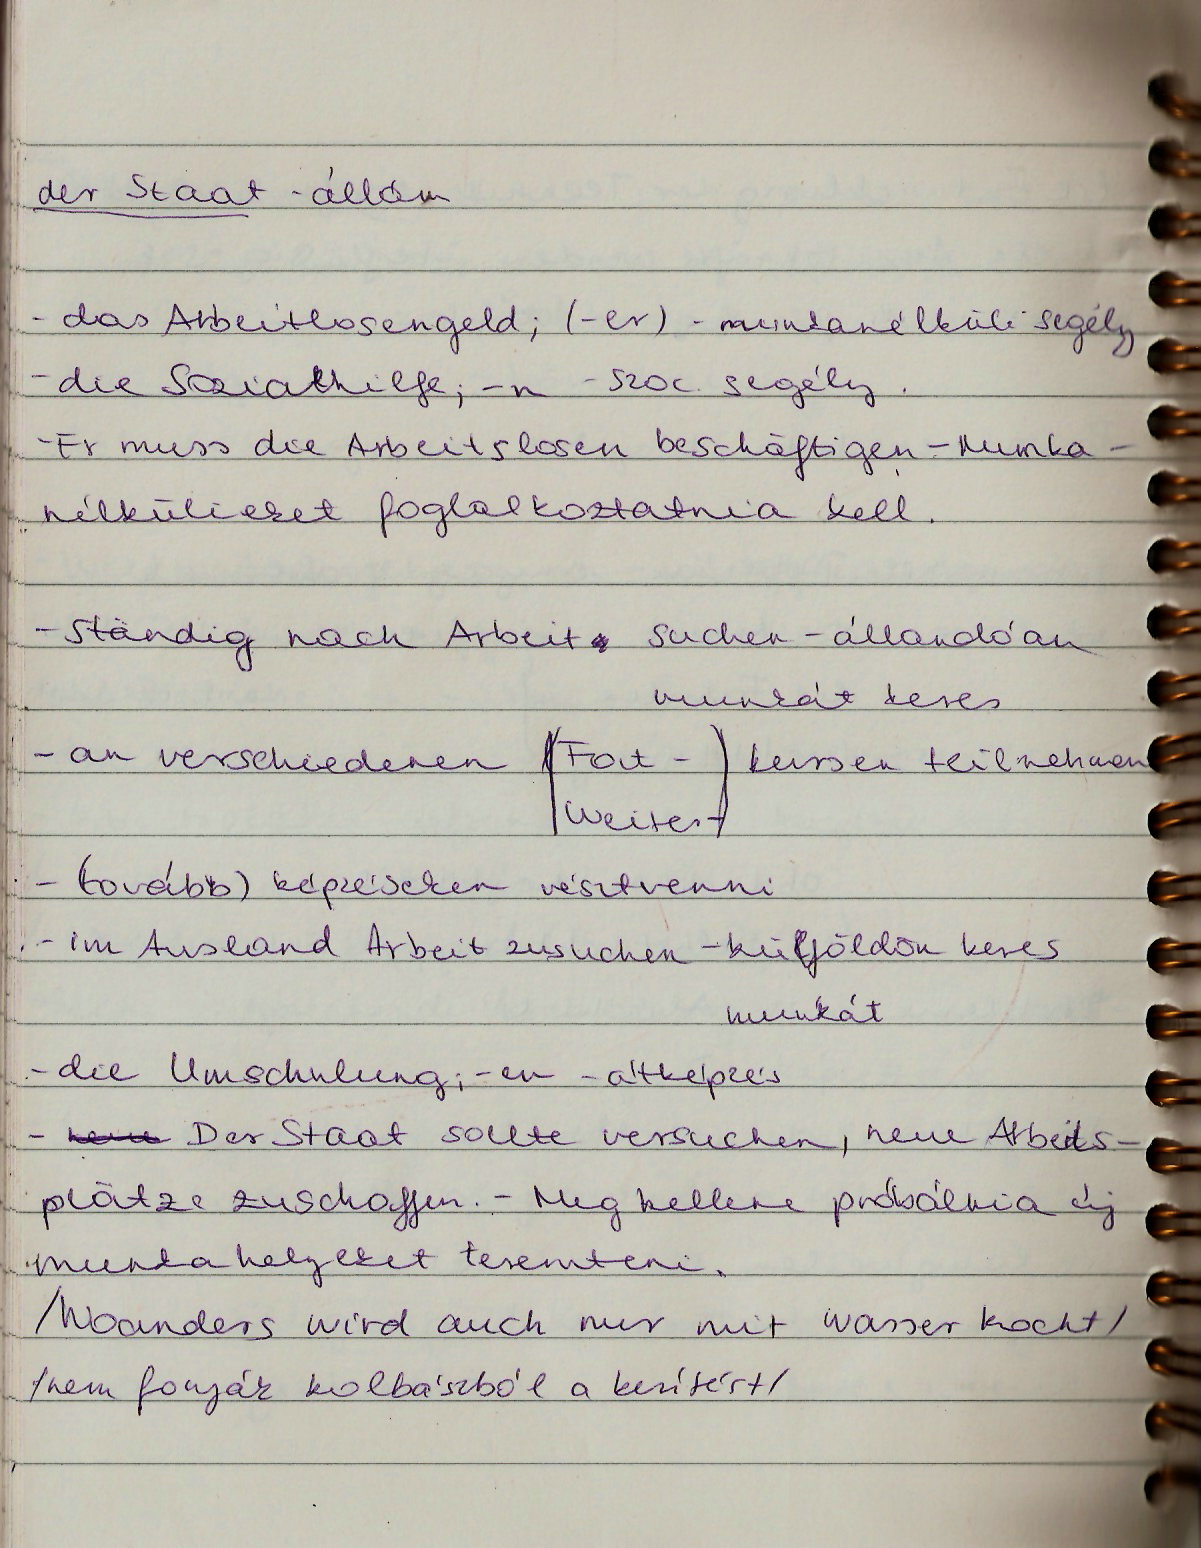 der Staat - állám
- das Arbeitlosengeld; (-er) - munkanélküli segély
- die Sozialhilfe; -n - szoc. segély.
- Er muss die Arbeitslosen beschäftigen - Munka-
nélkülieket foglalkoztatnia kell.
- Ständig nach Arbeit suchen - állandóan
munkát keres
- an verschiedenen (Fort - ) kursen teilnehmen
Weiter-
- (tovább) képzéseken résztvenni
- im Ausland Arbeit zusuchen - külföldön keres
munkát
- die Umschulung; -en - átképzés
- neue Der Staat sollte versuchen, neue Arbeits-
plätze zuschaffen. - Meg kellene próbálnia új
munkahelyeket teremteni.
/Woanders wird auch nur mit wasser kocht/
/nem fonják kolbászból a kerítést/